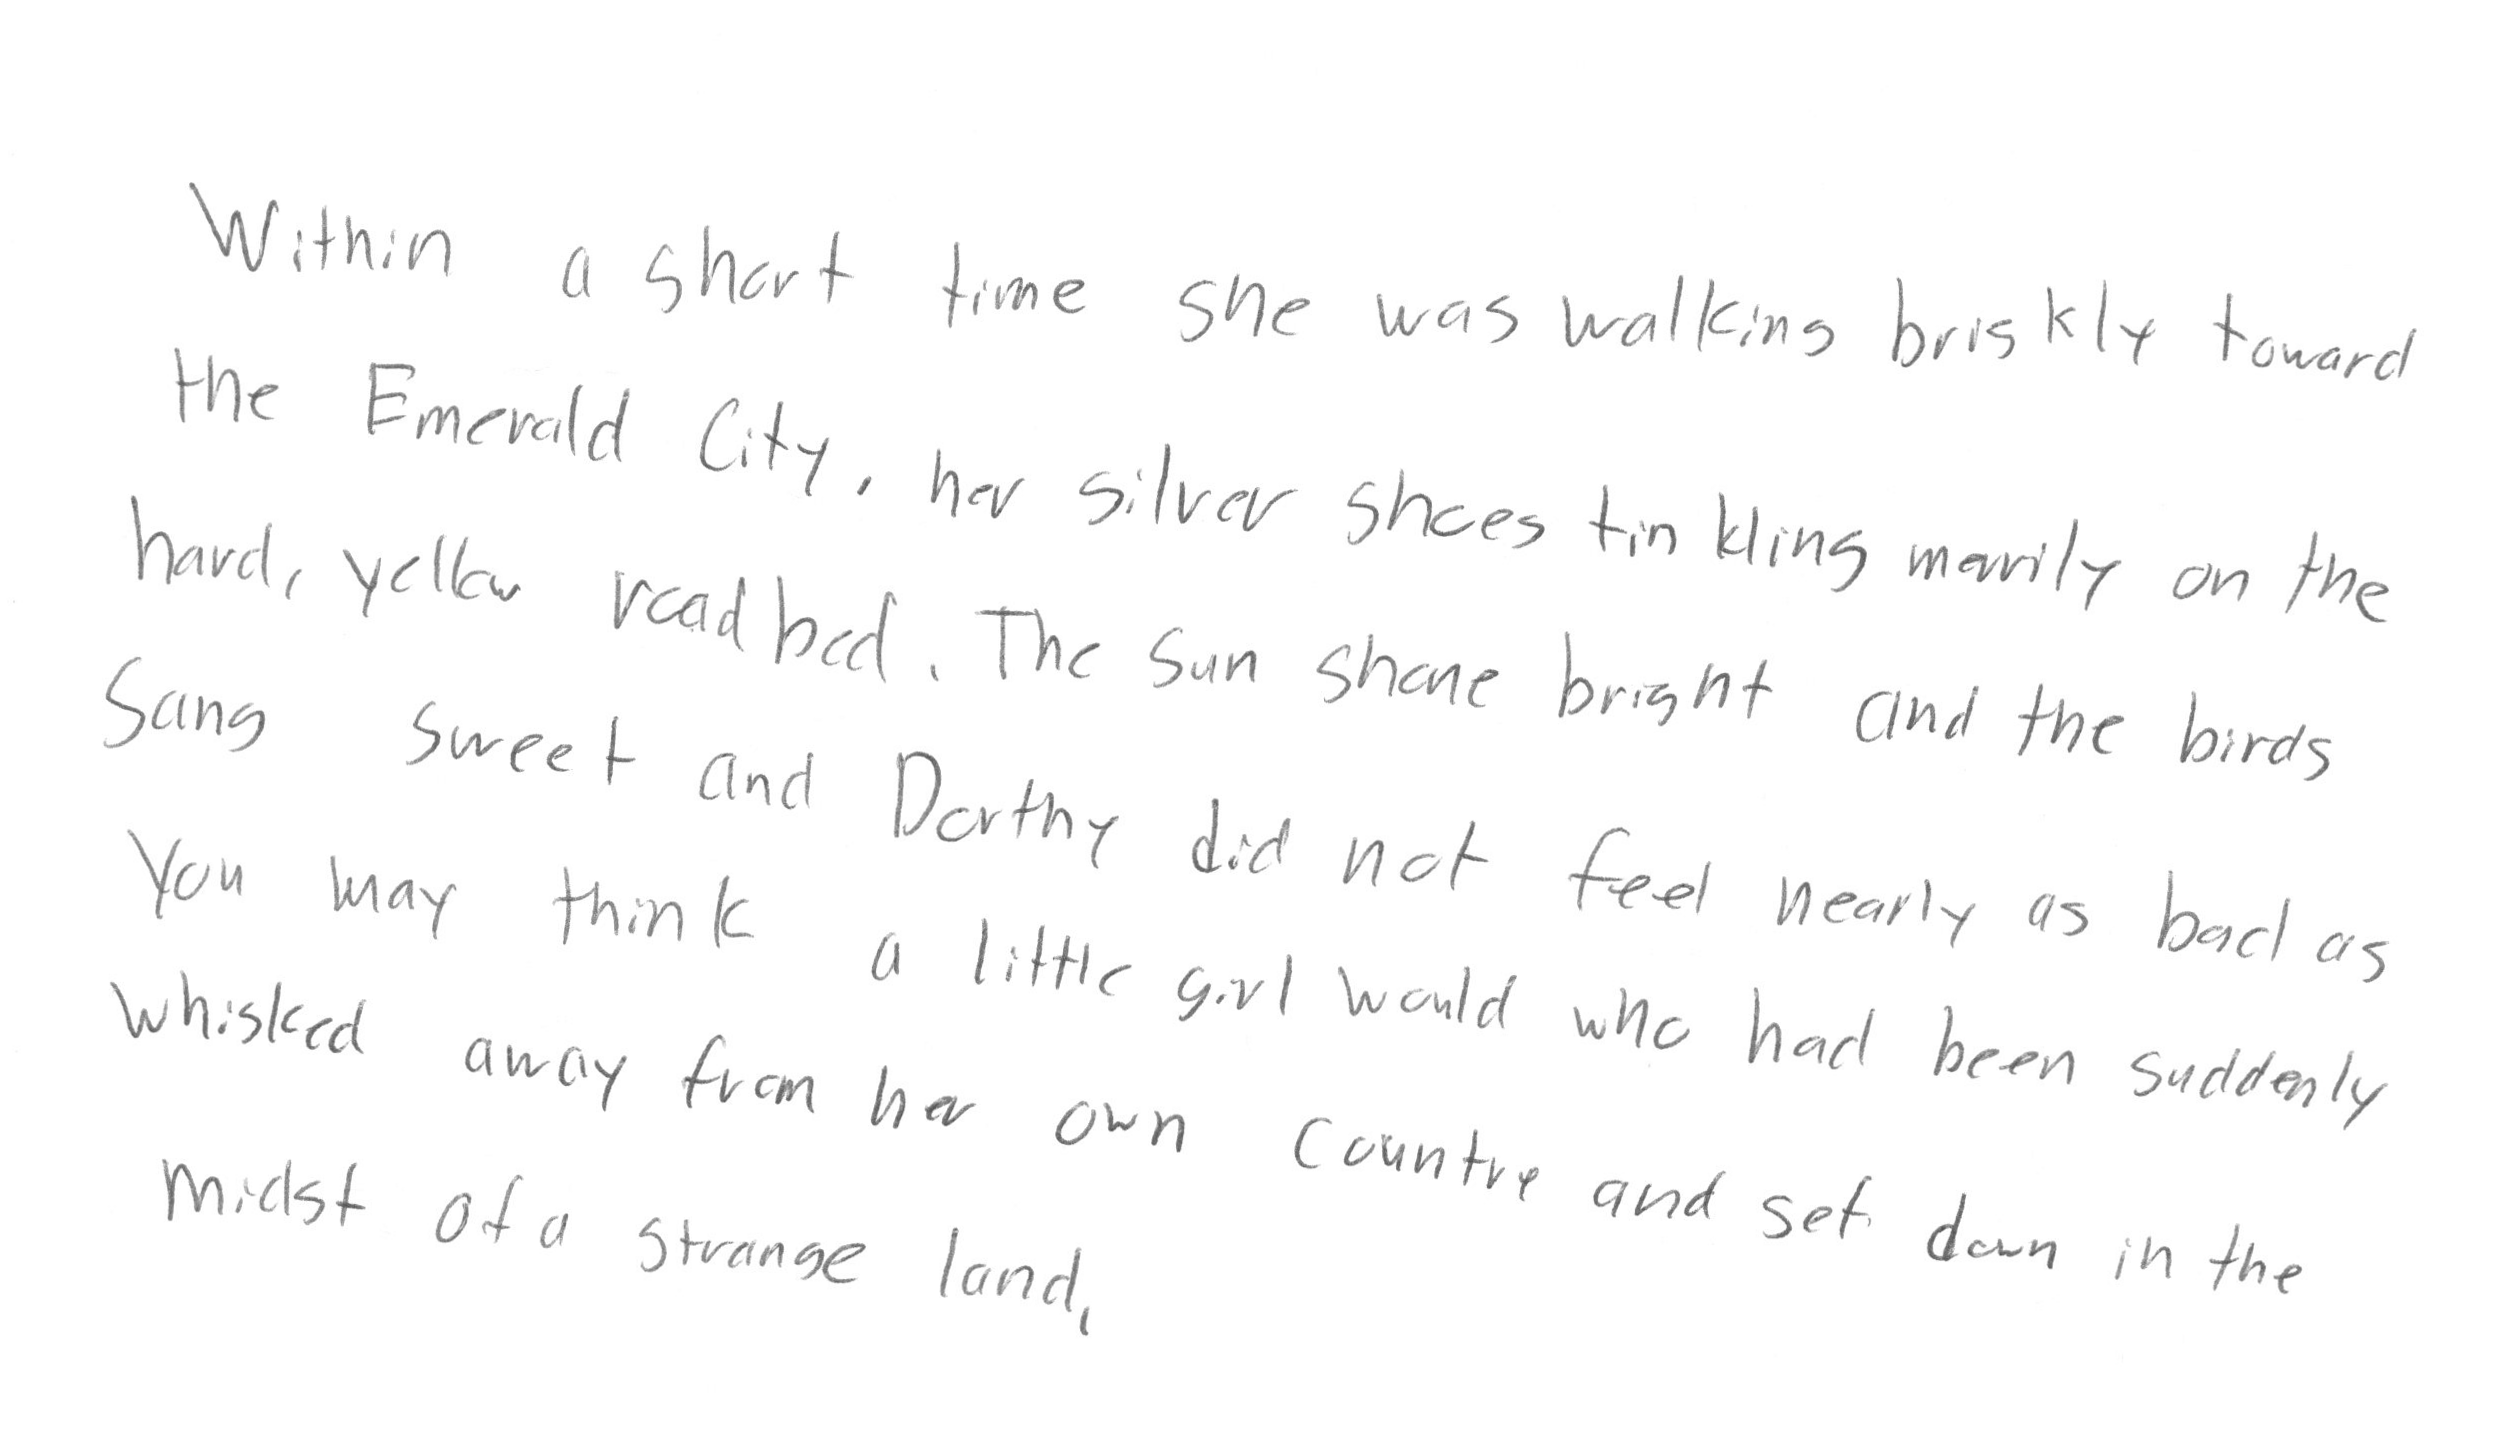 Within a short time she was walking briskly toward
the Emerald City, her silver shoes tinkling merrily on the
hard, yellow roadbed. The sun shone bright and the birds
Sang sweet and Dorthy did not feel nearly as bad as
you may think a little girl would who had been suddenly
whisked away from her own country and set down in the
midst of a strange land,